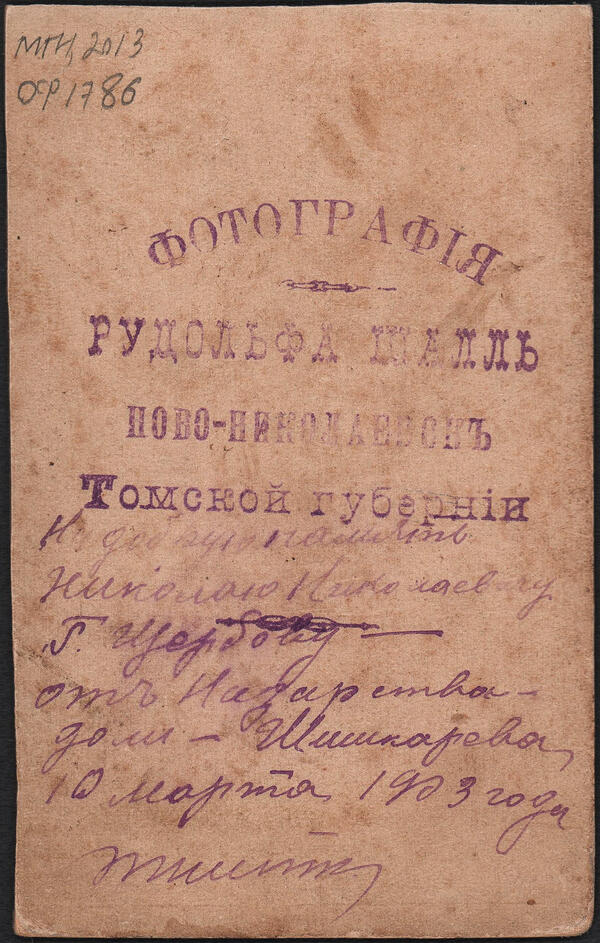 МГН, 2013
ОФ 1786
ФОТОГРАФІЯ
РУДОЛЬФА ШАЛЛЬ
НОВО-НИКОЛАЕВСКЪ
Томской губерніи
На добрую память
Николаю Николаевичу
Г. Щербову
отъ
Шишкарева
10 марта 1903 года